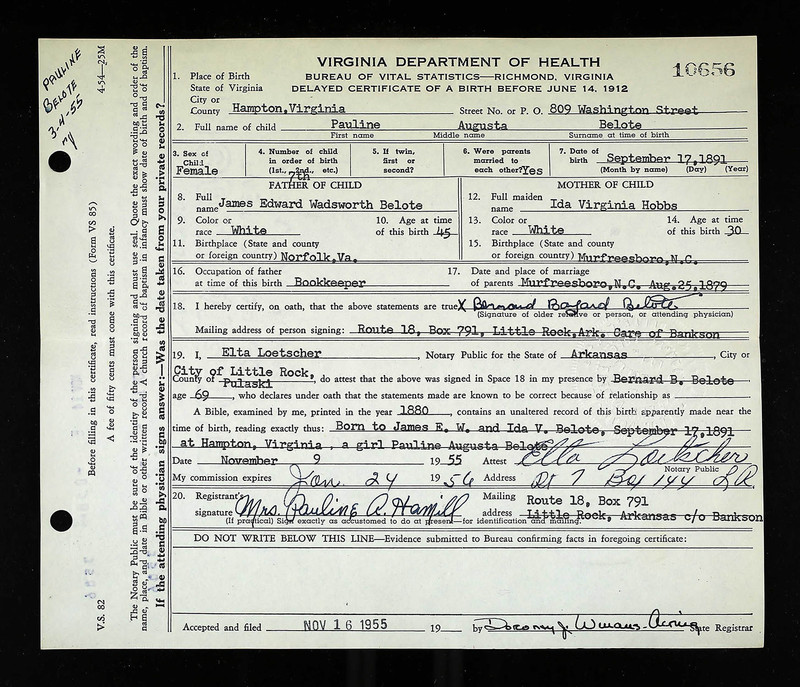 VIRGINIA DEPARTMENT OF HEALTH
BUREAU OF VITAL STATISTICS—RICHMOND, VIRGINIA
DELAYED CERTIFICATE OF A BIRTH BEFORE JUNE 14, 1912
10656
1. Place of Birth
State of Virginia
City or
County Hampton, Virginia Street No. or P. O. 809 Washington Street
2. Full name of child Pauline Augusta Belote
First name Middle name Surname at time of birth
3. Sex of Child Female
4. Number of child in order of birth (1st., 2nd., etc.) 7th
5. If twin, first or second?
6. Were parents married to each other? Yes
7. Date of birth September 17, 1891
(Month by name) (Day) (Year)
FATHER OF CHILD
MOTHER OF CHILD
8. Full name James Edward Wadsworth Belote
12. Full maiden name Ida Virginia Hobbs
9. Color or race White 10. Age at time of this birth 45
13. Color or race White 14. Age at time of this birth 30
11. Birthplace (State and county or foreign country) Norfolk, Va.
15. Birthplace (State and county or foreign country) Murfreesboro, N.C.
16. Occupation of father at time of this birth Bookkeeper
17. Date and place of marriage of parents Murfreesboro, N.C. Aug. 25, 1879
18. I hereby certify, on oath, that the above statements are true X Bernard Bayard Belote
(Signature of older relative or person, or attending physician)
Mailing address of person signing: Route 18, Box 791, Little Rock, Ark. Care of Bankson
19. I, Elta Loetscher, Notary Public for the State of Arkansas, City or
City of Little Rock,
County of Pulaski, do attest that the above was signed in Space 18 in my presence by Bernard B. Belote
age 69, who declares under oath that the statements made are known to be correct because of relationship as
A Bible, examined by me, printed in the year 1880, contains an unaltered record of this birth apparently made near the
time of birth, reading exactly thus: Born to James E. W. and Ida V. Belote, September 17, 1891
at Hampton, Virginia, a girl Pauline Augusta Belote
Date November 9 1955 Attest Elta Loetscher
Notary Public
My commission expires Jan. 24 1956 Address Rt 7 Box 144 L R.
20. Registrant's signature Mrs. Pauline A. Hamill
Mailing address Route 18, Box 791
Little Rock, Arkansas c/o Bankson
(If practical) Sign exactly as accustomed to do at present—for identification and mailing.
DO NOT WRITE BELOW THIS LINE—Evidence submitted to Bureau confirming facts in foregoing certificate:
Accepted and filed NOV 16 1955 19 by Dorothy J. State Registrar
PAULINE
BELOTE
3-4-55
4-54—25M
V.S. 82
Before filling in this certificate, read instructions (Form VS 85)
A fee of fifty cents must come with this certificate.
The Notary Public must be sure of the identity of the person signing and must use seal. Quote the exact wording and order of the
name, place, and date in Bible or other written record. A church record of baptism in infancy must show date of birth and of baptism.
If the attending physician signs answer:—Was the date taken from your private records?